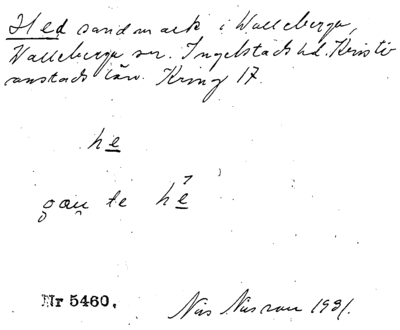 Hed sandmark i Valleberga,
Valleberga sn. Ingelstads hd. Kristi
anstads län. Kring 17.
he
gau te he
Nr 5460.
Nils 1931.